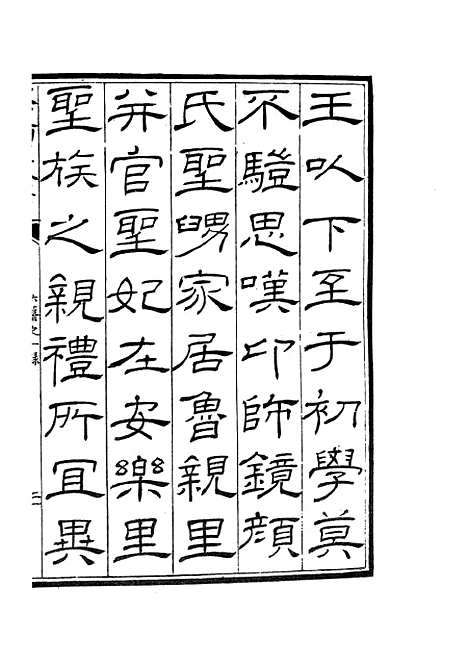 王以下至于初學莫
不驗思嘆卬師鏡顏
氏聖舅家居魯親里
并官聖妃在安樂里
聖族之親禮所宜異